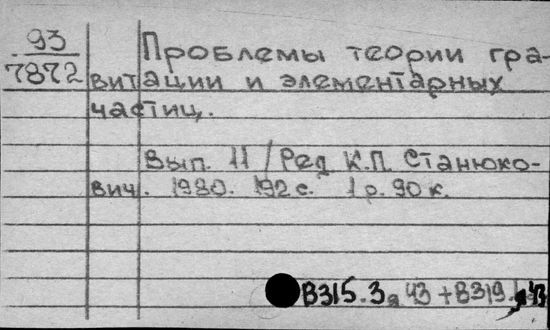 93
7872
Проблемы теории гра-
витации и элементарных
частиц.
Вып. 11 / Ред. К.П. Станюко-
вич. 1980. 192 с. 1 р. 90 к.
В315.3я43 + В319.